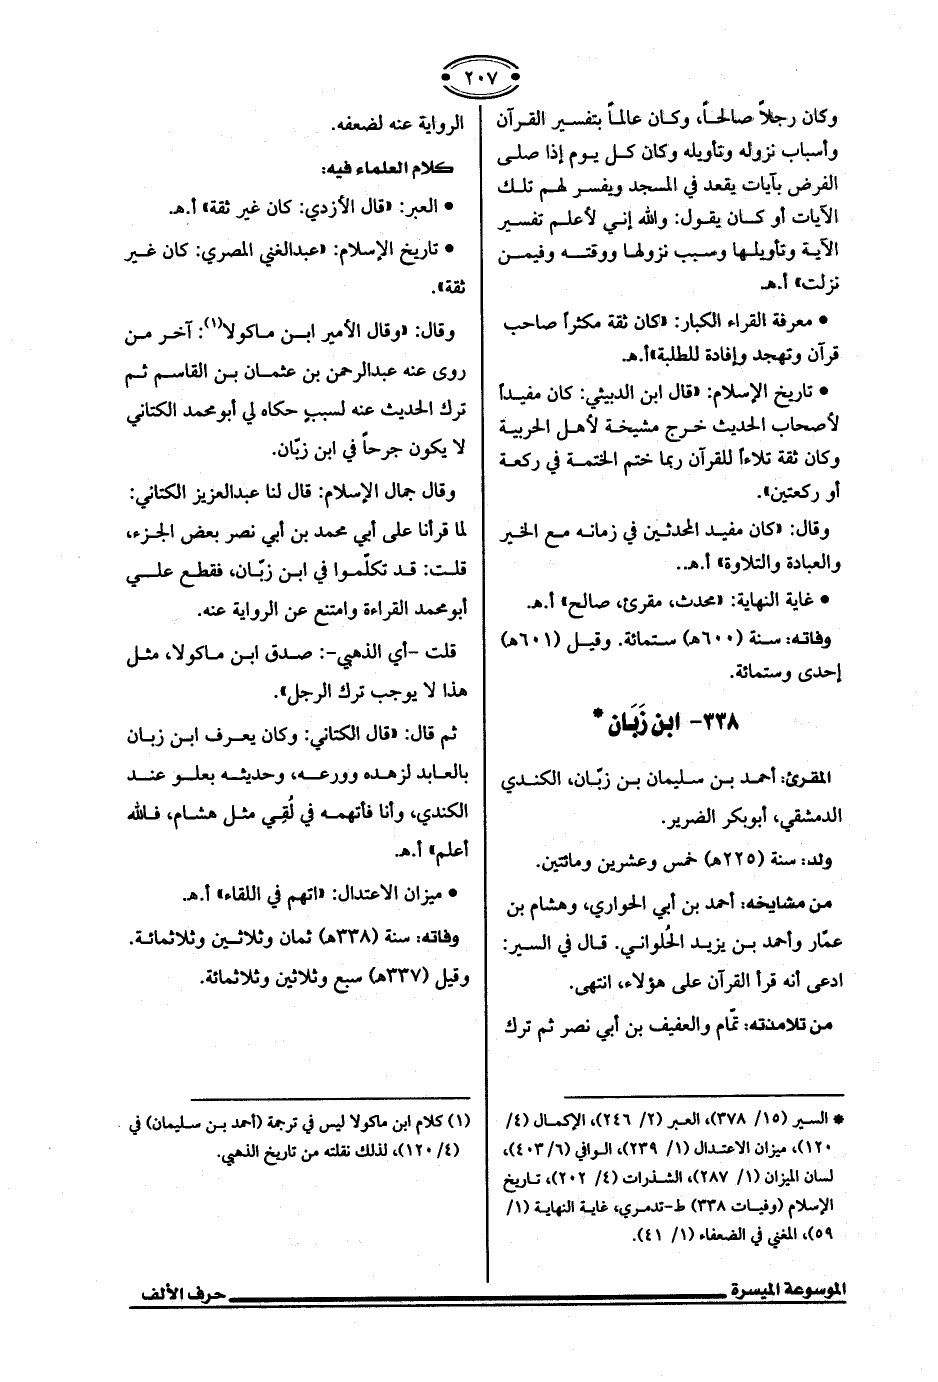 ٢٠٧
وكان رجلاً صالحاً، وكان عالماً بتفسير القرآن
وأسباب نزوله وتأويله وكان كل يوم إذا صلى
الفرض بآيات يقعد في المسجد ويفسر لهم تلك
الآيات أو كان يقول: والله إني لأعلم تفسير
الآية وتأويلها وسبب نزولها ووقته وفيمن
نزلت» أ.هـ
• معرفة القراء الكبار: «كان ثقة مكثراً صاحب
قرآن وتهجد وإفادة للطلبة»أ.هـ.
• تاريخ الإسلام: «قال ابن الدبيثي: كان مفيداً
لأصحاب الحديث خرج مشيخة لأهل الحربية
وكان ثقة تلاءاً للقرآن ربما ختم الختمة في ركعة
أو ركعتين».
وقال: «كان مفيد المحدثين في زمانه مع الخير
والعبادة والتلاوة» أ.هـ..
• غاية النهاية: «محدث، مقرئ، صالح» أ.هـ.
وفاته: سنة (٦٠٠هـ) ستمائة. وقيل (٦٠١هـ)
إحدى وستمائة.
٣٣٨- ابن زَبَان *
المقرئ: أحمد بن سليمان بن زبّان، الكندي
الدمشقي، أبوبكر الضرير.
ولد: سنة (٢٢٥هـ) خمس وعشرين ومائتين.
من مشايخه: أحمد بن أبي الحواري، وهشام بن
عمّار وأحمد بن يزيد الحُلواني. قال في السير:
ادعى أنه قرأ القرآن على هؤلاء، انتهى.
من تلامذته: تمّام والعفيف بن أبي نصر ثم ترك
* السير (١٥/ ٣٧٨)، العبر (٢/ ٢٤٦)، الإكمال (٤/
١٢٠)، ميزان الاعتدال (١/ ٢٣٩)، الوافي (٦/ ٤٠٣)،
لسان الميزان (١/ ٢٨٧)، الشذرات (٤/ ٢٠٢)، تاريخ
الإسلام (وفيات ٣٣٨) ط-تدمري، غاية النهاية (١/
٥٩)، المغني في الضعفاء (١/ ٤١).
الرواية عنه لضعفه.
كلام العلماء فيه:
• العبر: «قال الأزدي: كان غير ثقة» أ.هـ.
• تاريخ الإسلام: «عبدالغني المصري: كان غير
ثقة».
وقال: «وقال الأمير ابن ماكولا(١): آخر من
روى عنه عبدالرحمن بن عثمان بن القاسم ثم
ترك الحديث عنه لسببٍ حكاه لي أبومحمد الكتاني
لا يكون جرحاً في ابن زبّان.
وقال جمال الإسلام: قال لنا عبدالعزيز الكتاني:
لما قرأنا على أبي محمد بن أبي نصر بعض الجزء،
قلت: قد تكلّموا في ابن زبّان، فقطع علي
أبومحمد القراءة وامتنع عن الرواية عنه.
قلت -أي الذهبي-: صدق ابن ماكولا، مثل
هذا لا يوجب ترك الرجل».
ثم قال: «قال الكتاني: وكان يعرف ابن زبان
بالعابد لزهده وورعه، وحديثه بعلو عند
الكندي، وأنا فأتهمه في لُقِي مثل هشام، فالله
أعلم» أ.هـ.
• ميزان الاعتدال: «اتهم في اللقاء» أ.هـ.
وفاته: سنة (٣٣٨هـ) ثمان وثلاثين وثلاثمائة.
وقيل (٣٣٧هـ) سبع وثلاثين وثلاثمائة.
(١) كلام ابن ماكولا ليس في ترجمة (أحمد بن سليمان) في
(٤/ ١٢٠)، لذلك نقلته من تاريخ الذهبي.
الموسوعة الميسرة
حرف الألف